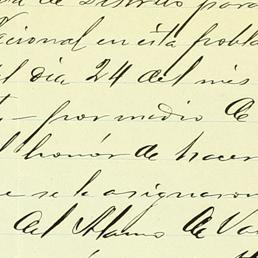 de Distrito para
Nacional en esta pobla
el dia 24 del mes
- por medio de
l honor de hacer
e se le asignaron
del Alamo de Va